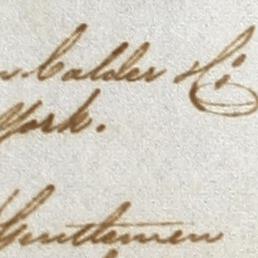 Calder &
York.
Gentlemen